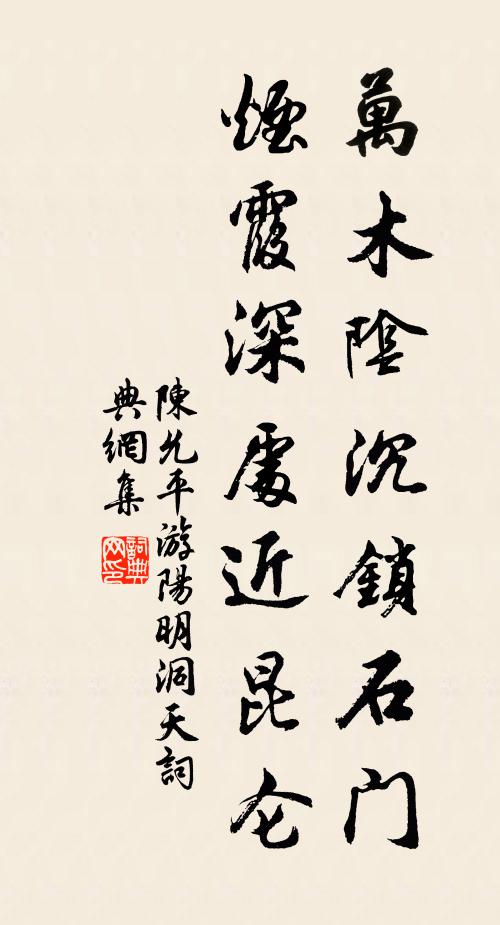 萬木陰沉鎖石门
煙霞深處近昆仑
陳允平游陽明洞天詞
典網集
詞典网印